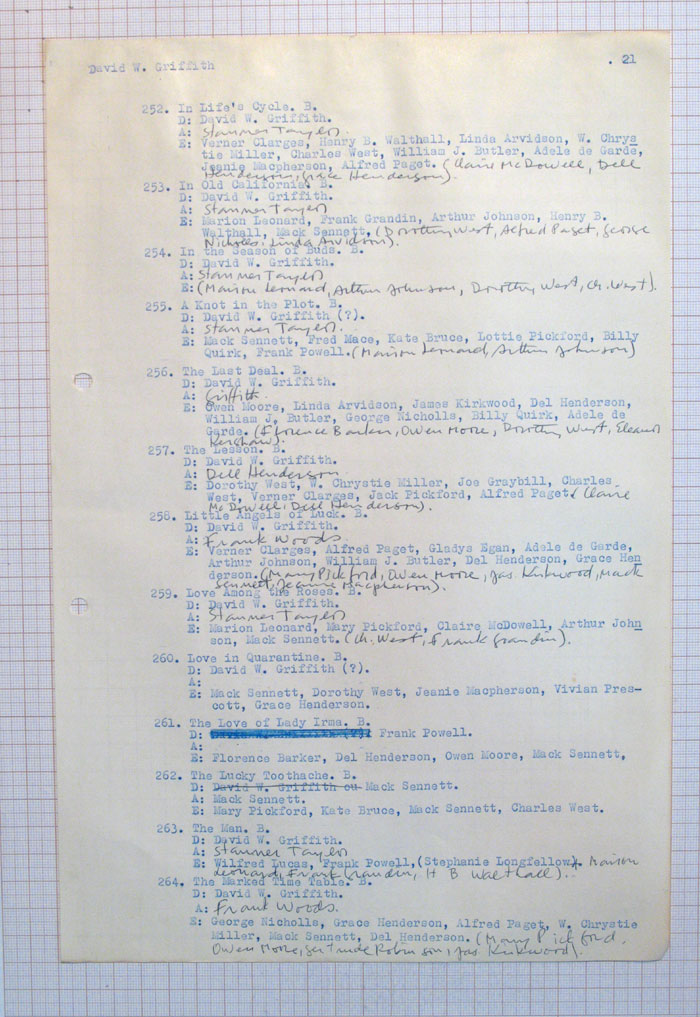 David W. Griffith . 21
252. In Life's Cycle. B.
D: David W. Griffith.
A: Stanner Taylor.
E: Verner Clarges, Henry B. Walthall, Linda Arvidson, W. Chrys
tie Miller, Charles West, William J. Butler, Adele de Garde,
Jeanie Macpherson, Alfred Paget. (Claire McDowell, Dell
Henderson, Grace Henderson).
253. In Old California. B.
D: David W. Griffith.
A: Stanner Taylor
E: Marion Leonard, Frank Grandin, Arthur Johnson, Henry B.
Walthall, Mack Sennett, (Dorothy West, Alfred Paget, George
Nicholls, Linda Arvidson).
254. In the Season of Buds. B.
D: David W. Griffith.
A: Stanner Taylor
E: (Marion Leonard, Arthur Johnson, Dorothy West, Ch. West).
255. A Knot in the Plot. B.
D: David W. Griffith (?).
A: Stanner Taylor.
E: Mack Sennett, Fred Mace, Kate Bruce, Lottie Pickford, Billy
Quirk, Frank Powell. (Marion Leonard, Arthur Johnson)
256. The Last Deal. B.
D: David W. Griffith.
A: Griffith.
E: Owen Moore, Linda Arvidson, James Kirkwood, Del Henderson,
William J. Butler, George Nicholls, Billy Quirk, Adele de
Garde. (Florence Barker, Owen Moore, Dorothy West, Eleanor
Kershaw).
257. The Lesson. B.
D: David W. Griffith.
A: Dell Henderson.
E: Dorothy West, W. Chrystie Miller, Joe Graybill, Charles
West, Verner Clarges, Jack Pickford, Alfred Paget. (Claire
McDowell, Dell Henderson).
258. Little Angels of Luck. B.
D: David W. Griffith.
A: Frank Woods.
E: Verner Clarges, Alfred Paget, Gladys Egan, Adele de Garde,
Arthur Johnson, William J. Butler, Del Henderson, Grace Hen
derson. (Mary Pickford, Owen Moore, Jas. Kirkwood, Mack
Sennett, Jeanie Macpherson).
259. Love Among the Roses. B.
D: David W. Griffith.
A: Stanner Taylor
E: Marion Leonard, Mary Pickford, Claire McDowell, Arthur John
son, Mack Sennett. (Ch. West, Frank Grandin).
260. Love in Quarantine. B.
D: David W. Griffith (?).
A:
E: Mack Sennett, Dorothy West, Jeanie Macpherson, Vivian Pres-
cott, Grace Henderson.
261. The Love of Lady Irma. B.
D: Frank Powell.
A:
E: Florence Barker, Del Henderson, Owen Moore, Mack Sennett,
262. The Lucky Toothache. B.
D: David W. Griffith ou Mack Sennett.
A: Mack Sennett.
E: Mary Pickford, Kate Bruce, Mack Sennett, Charles West.
263. The Man. B.
D: David W. Griffith.
A: Stanner Taylor
E: Wilfred Lucas, Frank Powell, (Stephanie Longfellow). Marion
Leonard, Frank Grandin, H B Walthall).
264. The Marked Time Table. B.
D: David W. Griffith.
A: Frank Woods.
E: George Nicholls, Grace Henderson, Alfred Paget, W. Chrystie
Miller, Mack Sennett, Del Henderson. (Mary Pickford,
Owen Moore, Gertrude Robinson, Jas. Kirkwood).